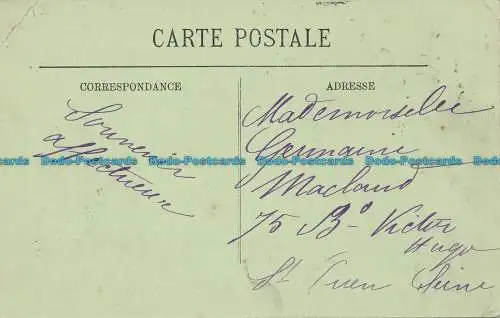 CARTE POSTALE
CORRESPONDANCE
Souvenir
affectueux
ADRESSE
Mademoiselle
Germaine
75 Bd Victor
Hugo
St Ouen Seine
Dodo-Postcards Dodo-Postcards Dodo-Postcards Dodo-Postcards Dodo-Postcards